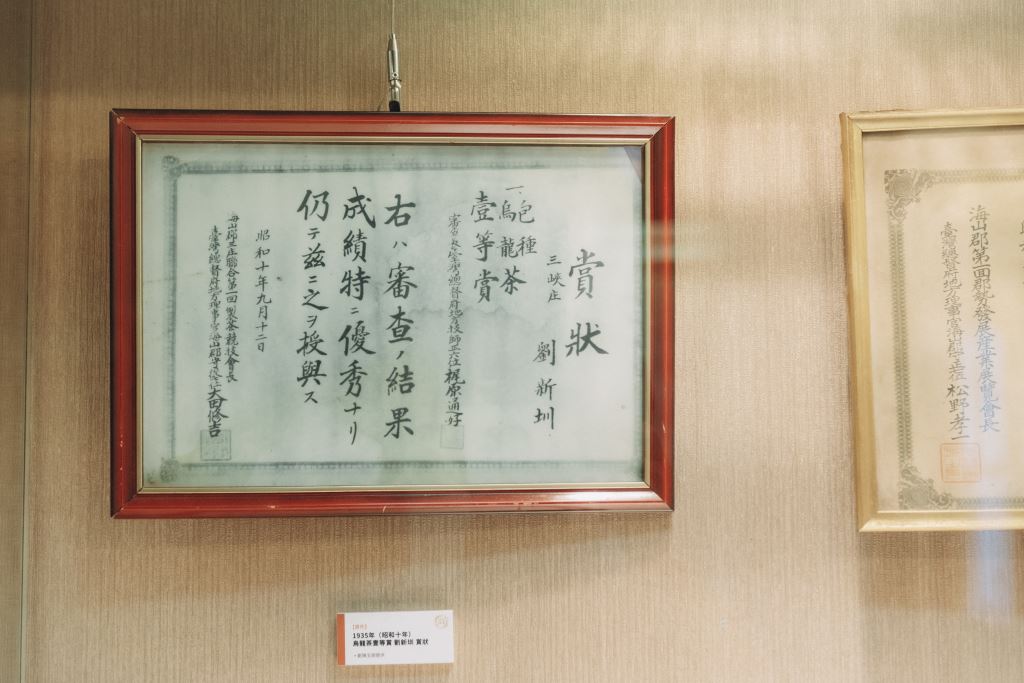 賞狀
三峽庄
劉新圳
一、包種
烏龍茶
壹等賞
審查長臺灣總督府地方技師正六位梶原通好
右ハ審查ノ結果
成績特ニ優秀ナリ
仍テ茲ニ之ヲ授與ス
昭和十年九月十二日
海山郡三庄聯合第一回製茶競技會長
臺灣總督府地方理事官海山郡守
太田修吉
海山郡第一回郡勢發展產業展覽會長
臺灣總督府地方理事官海山郡守
松野孝一
1935年（昭和十年）
烏龍茶壹等賞 劉新圳 賞狀